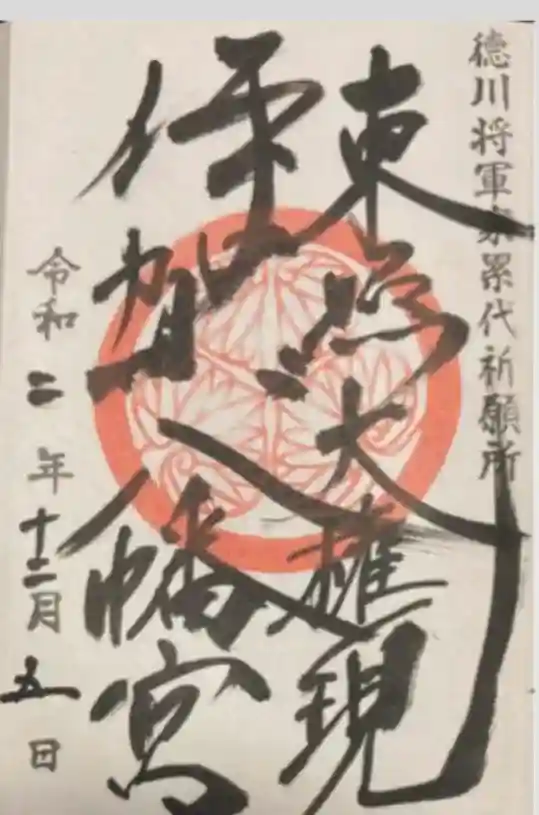 徳川将軍家累代祈願所
東照大権現
伊賀八幡宮
令和二年十二月五日